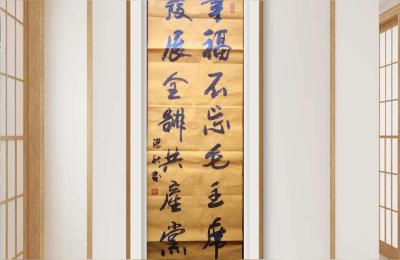 幸福不忘毛主席
發展全靠共產黨